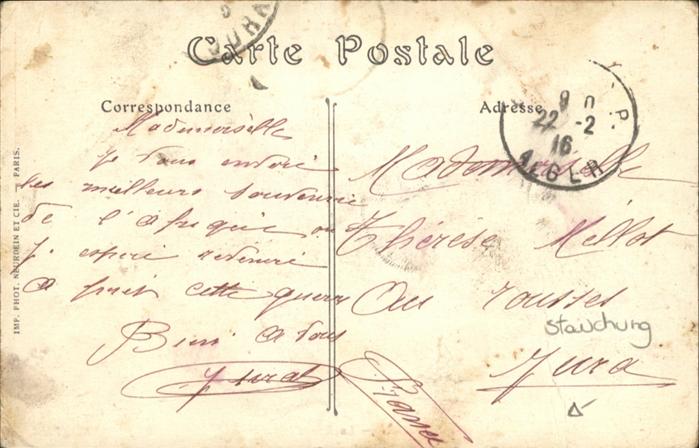 Carte Postale
Correspondance
Adresse
Mademoiselle
Je vous envoie
les meilleurs souvenir
de l'Afrique ou
J'espere revenire
a finit cette guerre
Bien a vous
Mademoiselle
Thérèse Mellot
Aux rousses
Jura
France
stauchung
8 0
22 -2
16
ALGER
R.P.
IMP. PHOT. NEURDEIN ET CIE. PARIS.